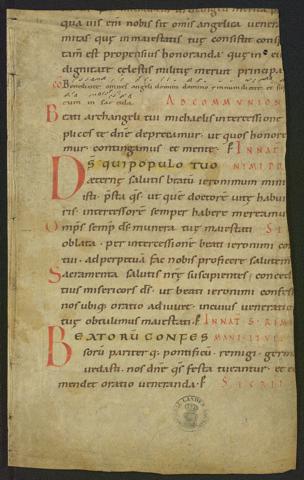 qua uis em nobis sit omis angelica uenera
nitas que in maiestatis tue consistit cons
tam est propensius honoranda que in e
dignitate celestis militie meruit principa
CO Benedicite omnes angeli domini domino ymnum dicite et su
tum in secula AD COMMUNION
Beati archangeli tui michaelis intercessione
plices te dne deprecamur ut quos honore
mur contingamus et mente. P INNAT
DS QUI POPULO TUO NIMI PR
aeternę salutis beatum ieronimum mini
isti psta qs ut quem doctorem uitę habui
ris intercessorem semper habere mereamu
Omps semp ds munera tuę maiestati SE
oblata per intercessionem beati ieronimi con
tui ad perpetuam fac nobis proficere salutem
Sacramenta salutis nrę suscipientes conced
tius misericors ds ut beati ieronimi confes
nos ubique oratio adiuuet in cuius ueneratio
tuę obtulimus maiestati P IN NAT S REMI
BEATORUM CONFES MANI ET VE
sorum pariter que pontificum remigi germa
uedasti nos dne qs festa tueantur et com
mendet oratio ueneranda P SECRET